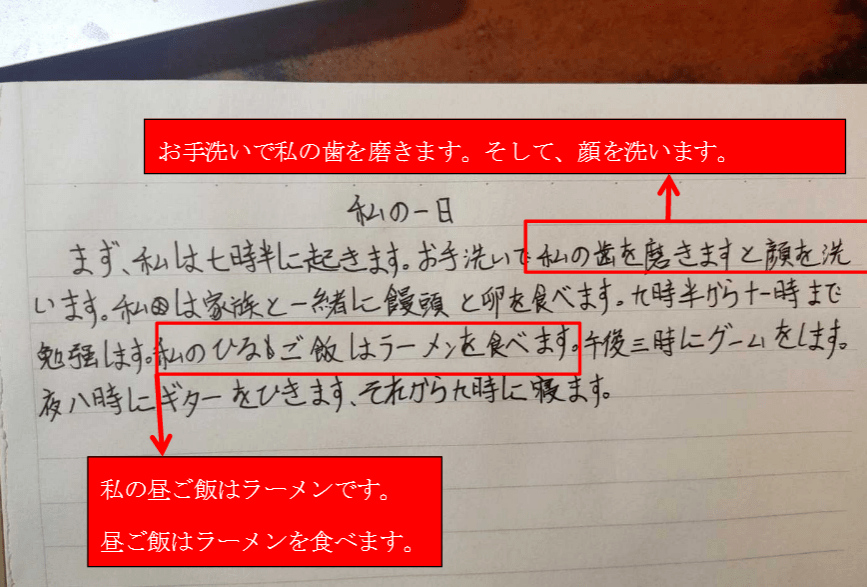 お手洗いで私の歯を磨きます。そして、顔を洗います。
私の一日
まず、私は七時半に起きます。お手洗いで私の歯を磨きますと顔を洗
います。私は家族と一緒に饅頭と卵を食べます。九時半から十一時まで
勉強します。私のひるもご飯はラーメンを食べます。午後三時にゲームをします。
夜八時にギターをひきます、それから九時に寝ます。
私の昼ご飯はラーメンです。
昼ご飯はラーメンを食べます。